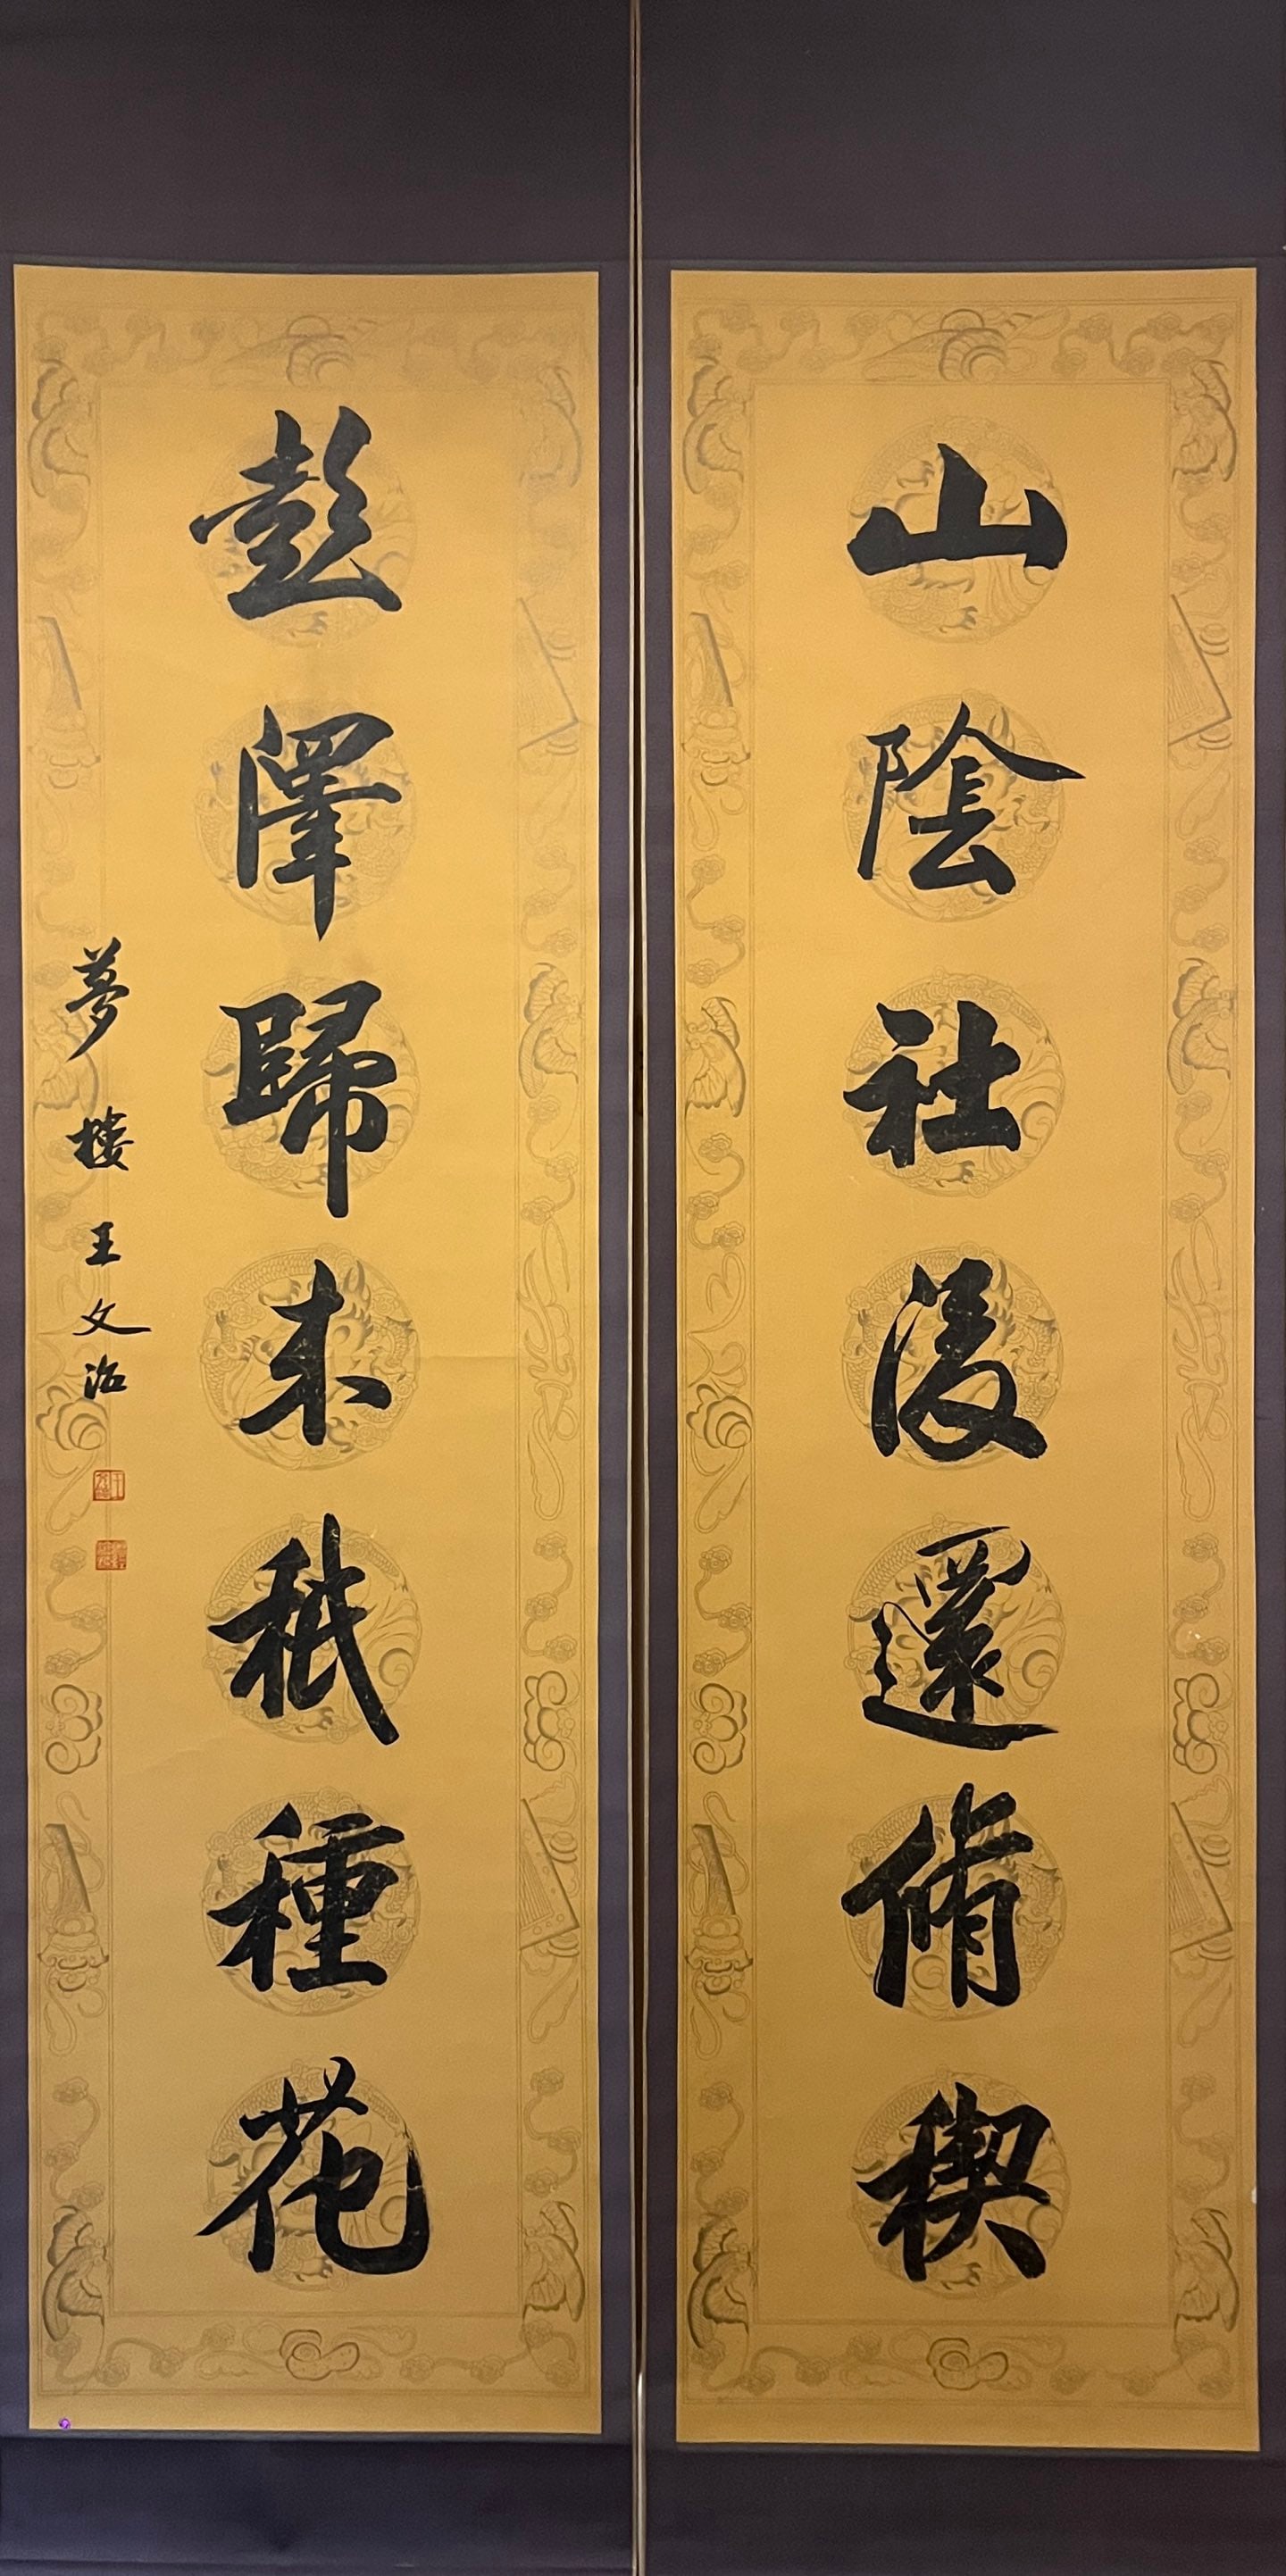 山陰社後還脩禊
彭澤歸来秖種花
夢樓王文治